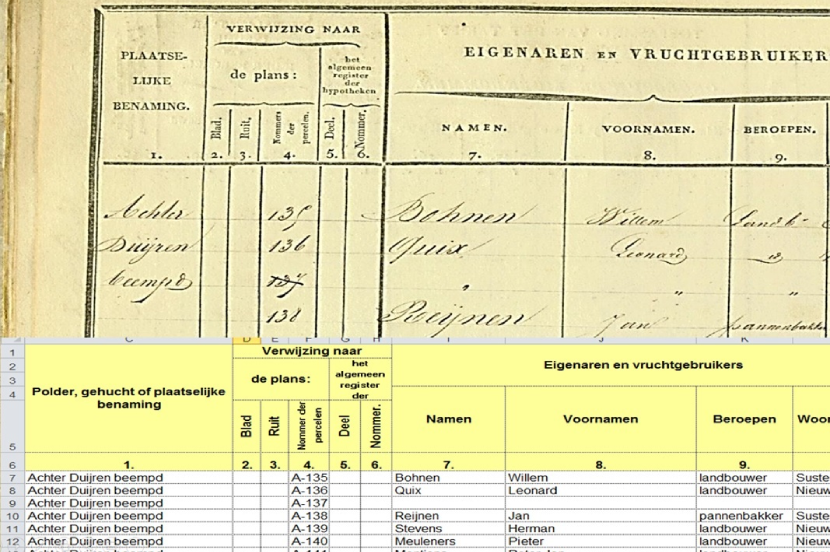 VERWIJZING NAAR
EIGENAREN EN VRUCHTGEBRUIKER
PLAATSE-
LIJKE
BENAMING.
de plans:
het
algemeen
register
der
hypotheken
Blad.
Ruit.
Nommers der percelen.
Deel.
Nommer.
NAMEN.
VOORNAMEN.
BEROEPEN.
1. 2. 3. 4. 5. 6. 7. 8. 9.
Achter 135 Bohnen Willem Landb
Duijren 136 Quix Leonard id
beempd 137 " " "
138 Reijnen Jan pannenbakker
C D E F G H I J K
1 Verwijzing naar
2 het
Eigenaren en vruchtgebruikers
3 de plans: algemeen
register
4 der
Polder, gehucht of plaatselijke
benaming
Blad
Ruit
Nommer der percelen
Deel
Nommer.
5 Namen Voornamen Beroepen Woo
6 1. 2. 3. 4. 5. 6. 7. 8. 9.
7 Achter Duijren beempd A-135 Bohnen Willem landbouwer Suste
8 Achter Duijren beempd A-136 Quix Leonard landbouwer Nieuw
9 Achter Duijren beempd A-137
10 Achter Duijren beempd A-138 Reijnen Jan pannenbakker Suste
11 Achter Duijren beempd A-139 Stevens Herman landbouwer Nieuw
12 Achter Duijren beempd A-140 Meuleners Pieter landbouwer Nieuw